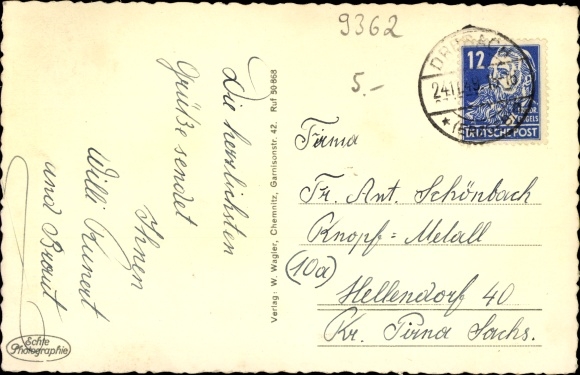 9362
5.-
Die herzlichsten
Grüße sendet
Ihnen
Willi Kunert
und Braut
Echte
Photographie
Verlag: W. Wagler, Chemnitz, Garnisonstr. 42. Ruf 50868
12
DEUTSCHE POST
24.11.49
Firma
Fr. Ant. Schönbach
Knopf=Metall
(10a)
Hellendorf 40
Kr. Pirna Sachs.